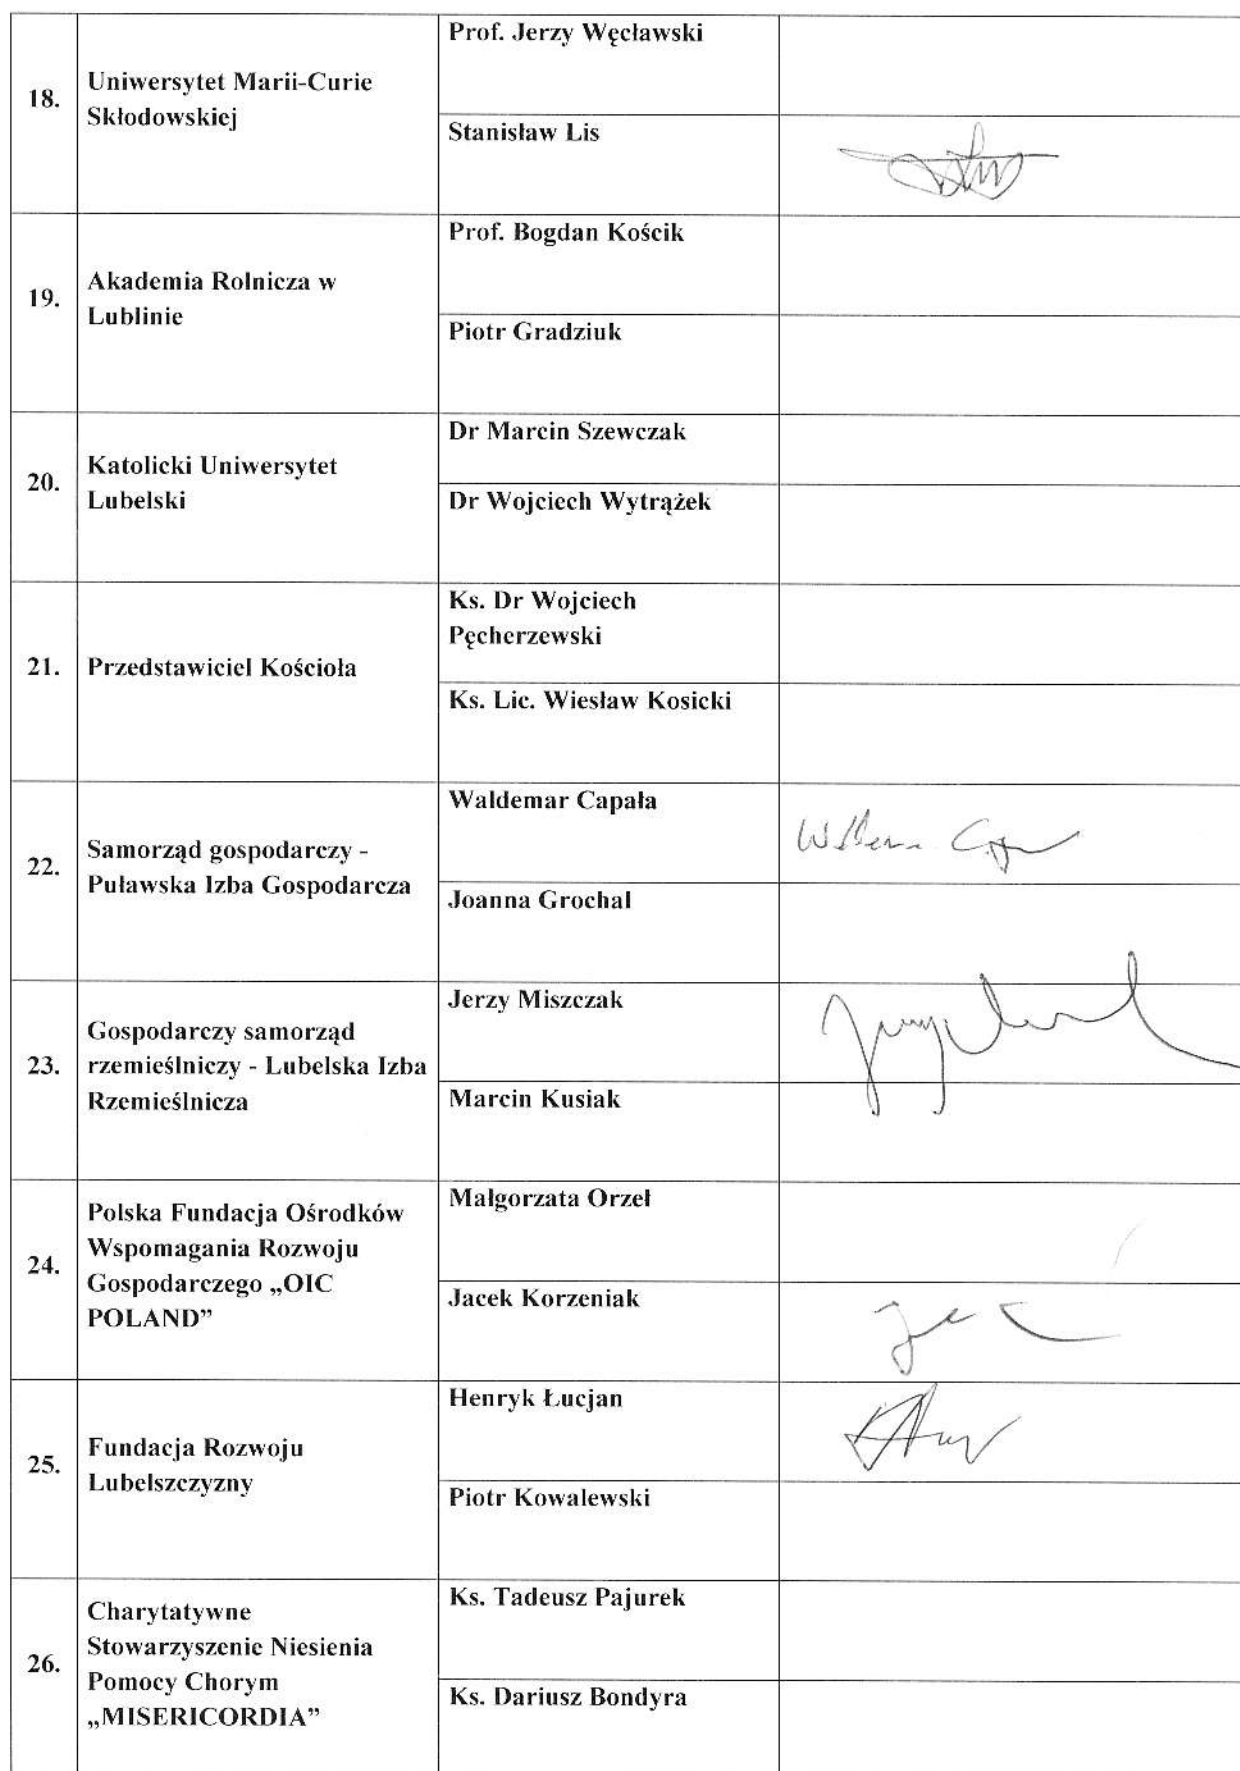 18.
Uniwersytet Marii-Curie
Skłodowskiej
Prof. Jerzy Węcławski
Stanisław Lis
19.
Akademia Rolnicza w
Lublinie
Prof. Bogdan Kościk
Piotr Gradziuk
20.
Katolicki Uniwersytet
Lubelski
Dr Marcin Szewczak
Dr Wojciech Wytrążek
21.
Przedstawiciel Kościoła
Ks. Dr Wojciech
Pęcherzewski
Ks. Lic. Wiesław Kosicki
22.
Samorząd gospodarczy -
Puławska Izba Gospodarcza
Waldemar Capała
Joanna Grochal
23.
Gospodarczy samorząd
rzemieślniczy - Lubelska Izba
Rzemieślnicza
Jerzy Miszczak
Marcin Kusiak
24.
Polska Fundacja Ośrodków
Wspomagania Rozwoju
Gospodarczego „OIC
POLAND”
Małgorzata Orzeł
Jacek Korzeniak
25.
Fundacja Rozwoju
Lubelszczyzny
Henryk Łucjan
Piotr Kowalewski
26.
Charytatywne
Stowarzyszenie Niesienia
Pomocy Chorym
„MISERICORDIA”
Ks. Tadeusz Pajurek
Ks. Dariusz Bondyra